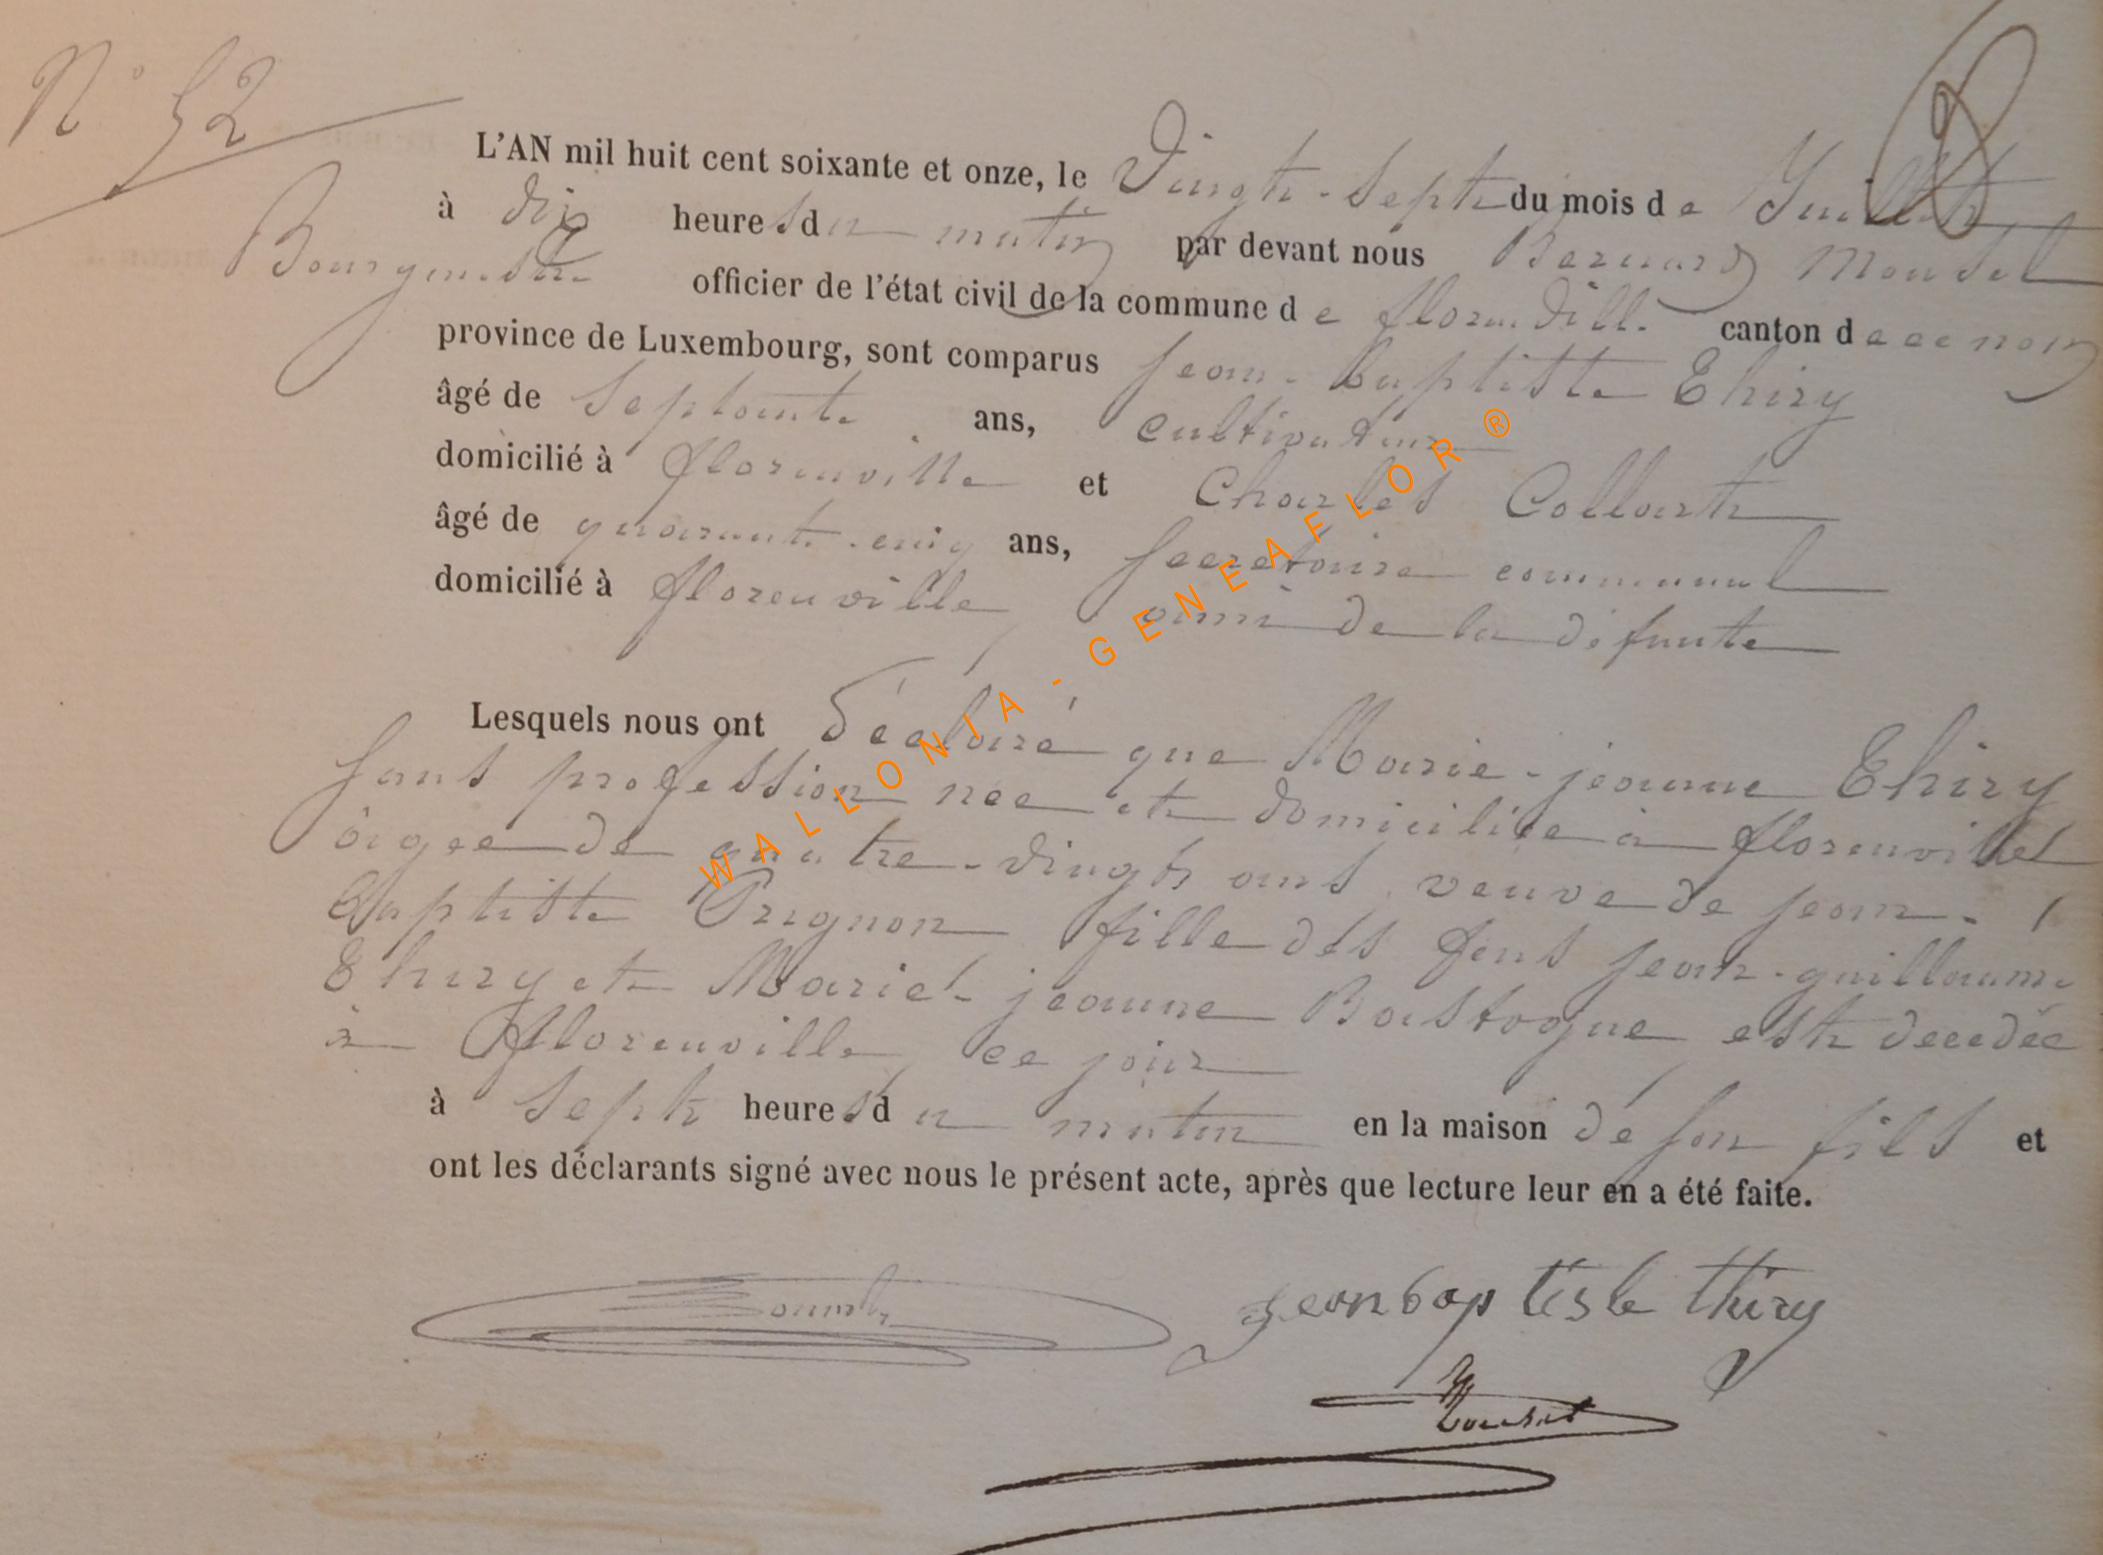 N° 52
L'AN mil huit cent soixante et onze, le Vingt-sept du mois de Juillet
à dix heures du matin par devant nous Bernard Mousel
Bourgmestre officier de l'état civil de la commune de florenville canton de
province de Luxembourg, sont comparus jean-baptiste Thiry
âgé de septante ans, cultivateur
domicilié à florenville et Charles Collart
âgé de quarante-cinq ans, secretaire communal
domicilié à florenville, ami de la défunte
Lesquels nous ont déclaré que Marie-jeanne Thiry
sans profession née et domiciliée à florenville
âgée de quatre-vingt ans veuve de jean-
baptiste Prignon fille des feus jean-guillaume
Thiry et Marie-jeanne Bastogne est decedée
à florenville, ce jour
à sept heures du matin en la maison de son fils et
ont les déclarants signé avec nous le présent acte, après que lecture leur en a été faite.
jean baptiste thiry
WALLONIA - GENEAFLOR ®